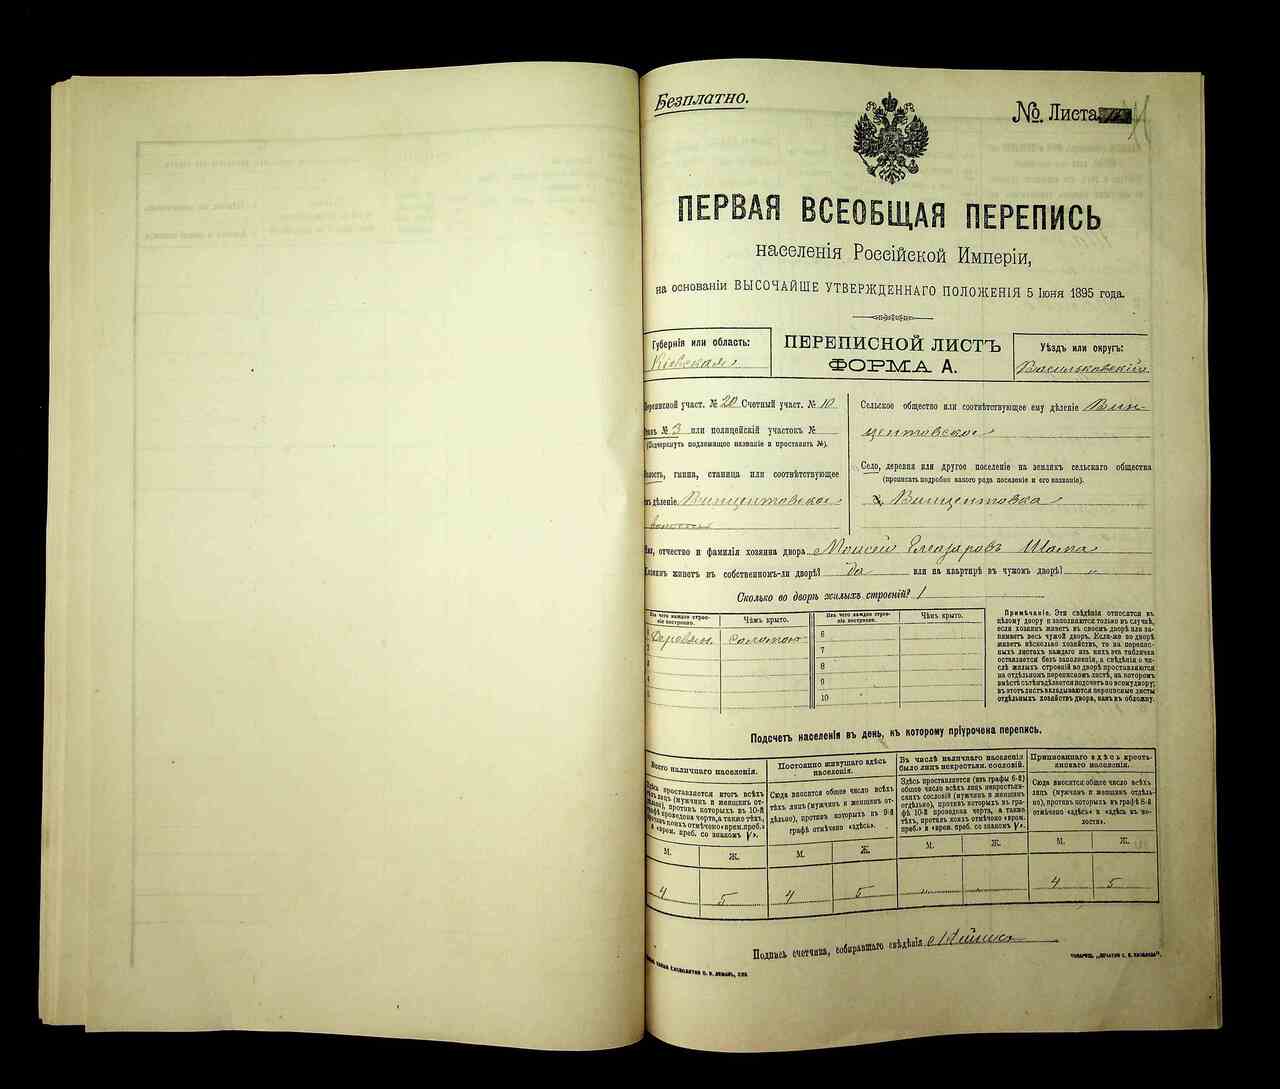 Безплатно.
№. Листа
ПЕРВАЯ ВСЕОБЩАЯ ПЕРЕПИСЬ
населенія Россійской Имперіи,
на основаніи ВЫСОЧАЙШЕ УТВЕРЖДЕННАГО ПОЛОЖЕНІЯ 5 Іюня 1895 года.
Губернія или область:
Кіевская
ПЕРЕПИСНОЙ ЛИСТЪ
ФОРМА А.
Уѣздъ или округъ:
Васильковскій
Переписной участ. № 20 Счетный участ. № 10
Станъ № 3 или полицейскій участокъ №
(Подчеркнуть подлежащее названіе и проставить №).
Волость, гмина, станица или соотвѣтствующее
имъ дѣленіе Винцентовское
волости
Сельское общество или соотвѣтствующее ему дѣленіе Вин-
центовское
Село, деревня или другое поселеніе на земляхъ сельскаго общества
(прописать подробно какого рода поселеніе и его названіе).
Винцентовка
Имя, отчество и фамилія хозяина двора Моисей Елазаровъ Шама
Хозяинъ живетъ въ собственномъ-ли дворѣ? да или на квартирѣ въ чужомъ дворѣ? „
Сколько во дворѣ жилыхъ строеній? 1
Изъ чего каждое строе-
ніе построено.
Чѣмъ крыто.
Деревян. соломою
2
3
4
5
Изъ чего каждое строе-
ніе построено.
Чѣмъ крыто.
6
7
8
9
10
Примѣчаніе. Эти свѣдѣнія относятся къ
цѣлому двору и заполняются только въ случаѣ,
если хозяинъ живетъ въ своемъ дворѣ или за-
нимаетъ весь чужой дворъ. Если-же во дворѣ
живетъ нѣсколько хозяйствъ, то на перепис-
ныхъ листахъ каждаго изъ нихъ эта табличка
оставляется безъ заполненія, а свѣдѣнія о чи-
слѣ жилыхъ строеній во дворѣ проставляются
на отдѣльномъ переписномъ листѣ, на которомъ
вмѣстѣ съ тѣмъ дѣлается подсчетъ по всему двору;
въ этотъ листъ вкладываются переписные листы
отдѣльныхъ хозяйствъ двора, какъ въ обложку.
Подсчетъ населенія въ день, къ которому пріурочена перепись.
Всего наличнаго населенія.
Здѣсь проставляется итогъ всѣхъ
тѣхъ лицъ (мужчинъ и женщинъ от-
дѣльно), противъ которыхъ въ 10-й
графѣ проведена черта, а также тѣхъ,
противъ коихъ отмѣчено «врем. преб.»
и «врем. преб. со знакомъ V».
М. Ж.
4 5
Постоянно живущаго здѣсь
населенія.
Сюда вносится общее число всѣхъ
тѣхъ лицъ (мужчинъ и женщинъ от-
дѣльно), противъ которыхъ въ 9-й
графѣ отмѣчено «здѣсь».
М. Ж.
4 5
Въ числѣ наличнаго населенія
было лицъ некрестьян. сословій.
Здѣсь проставляется (изъ графы 6-й)
общее число всѣхъ лицъ некрестьян-
скихъ сословій (мужчинъ и женщинъ
отдѣльно), противъ которыхъ въ гра-
фѣ 10-й проведена черта, а также
тѣхъ, противъ коихъ отмѣчено «врем.
преб.» и «врем. преб. со знакомъ V».
М. Ж.
„ „
Приписаннаго здѣсь кресть-
янскаго населенія.
Сюда вносится общее число всѣхъ
лицъ (мужчинъ и женщинъ отдѣль-
но), противъ которыхъ въ графѣ 8-й
отмѣчено «здѣсь» и «здѣсь въ во-
лости».
М. Ж.
4 5
Подпись счетчика, собиравшаго свѣдѣнія